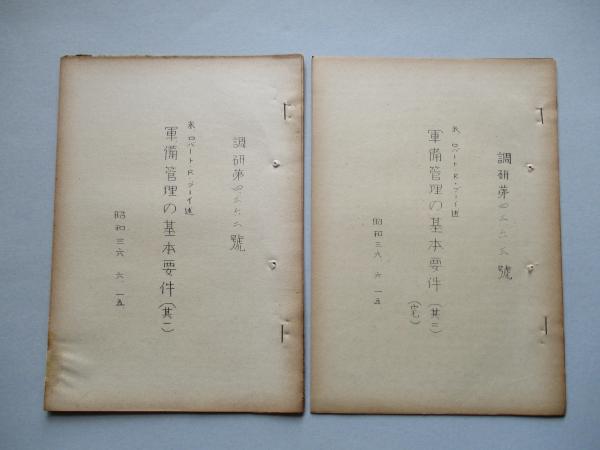 調研第四二六二號
米 ロバート R・ブーイ述
軍備管理の基本要件(其二)
昭和三六 六 一五
調研第四二六三號
米 ロバート R・ブーイ述
軍備管理の基本要件(其三)
(完)
昭和三六 六 一五